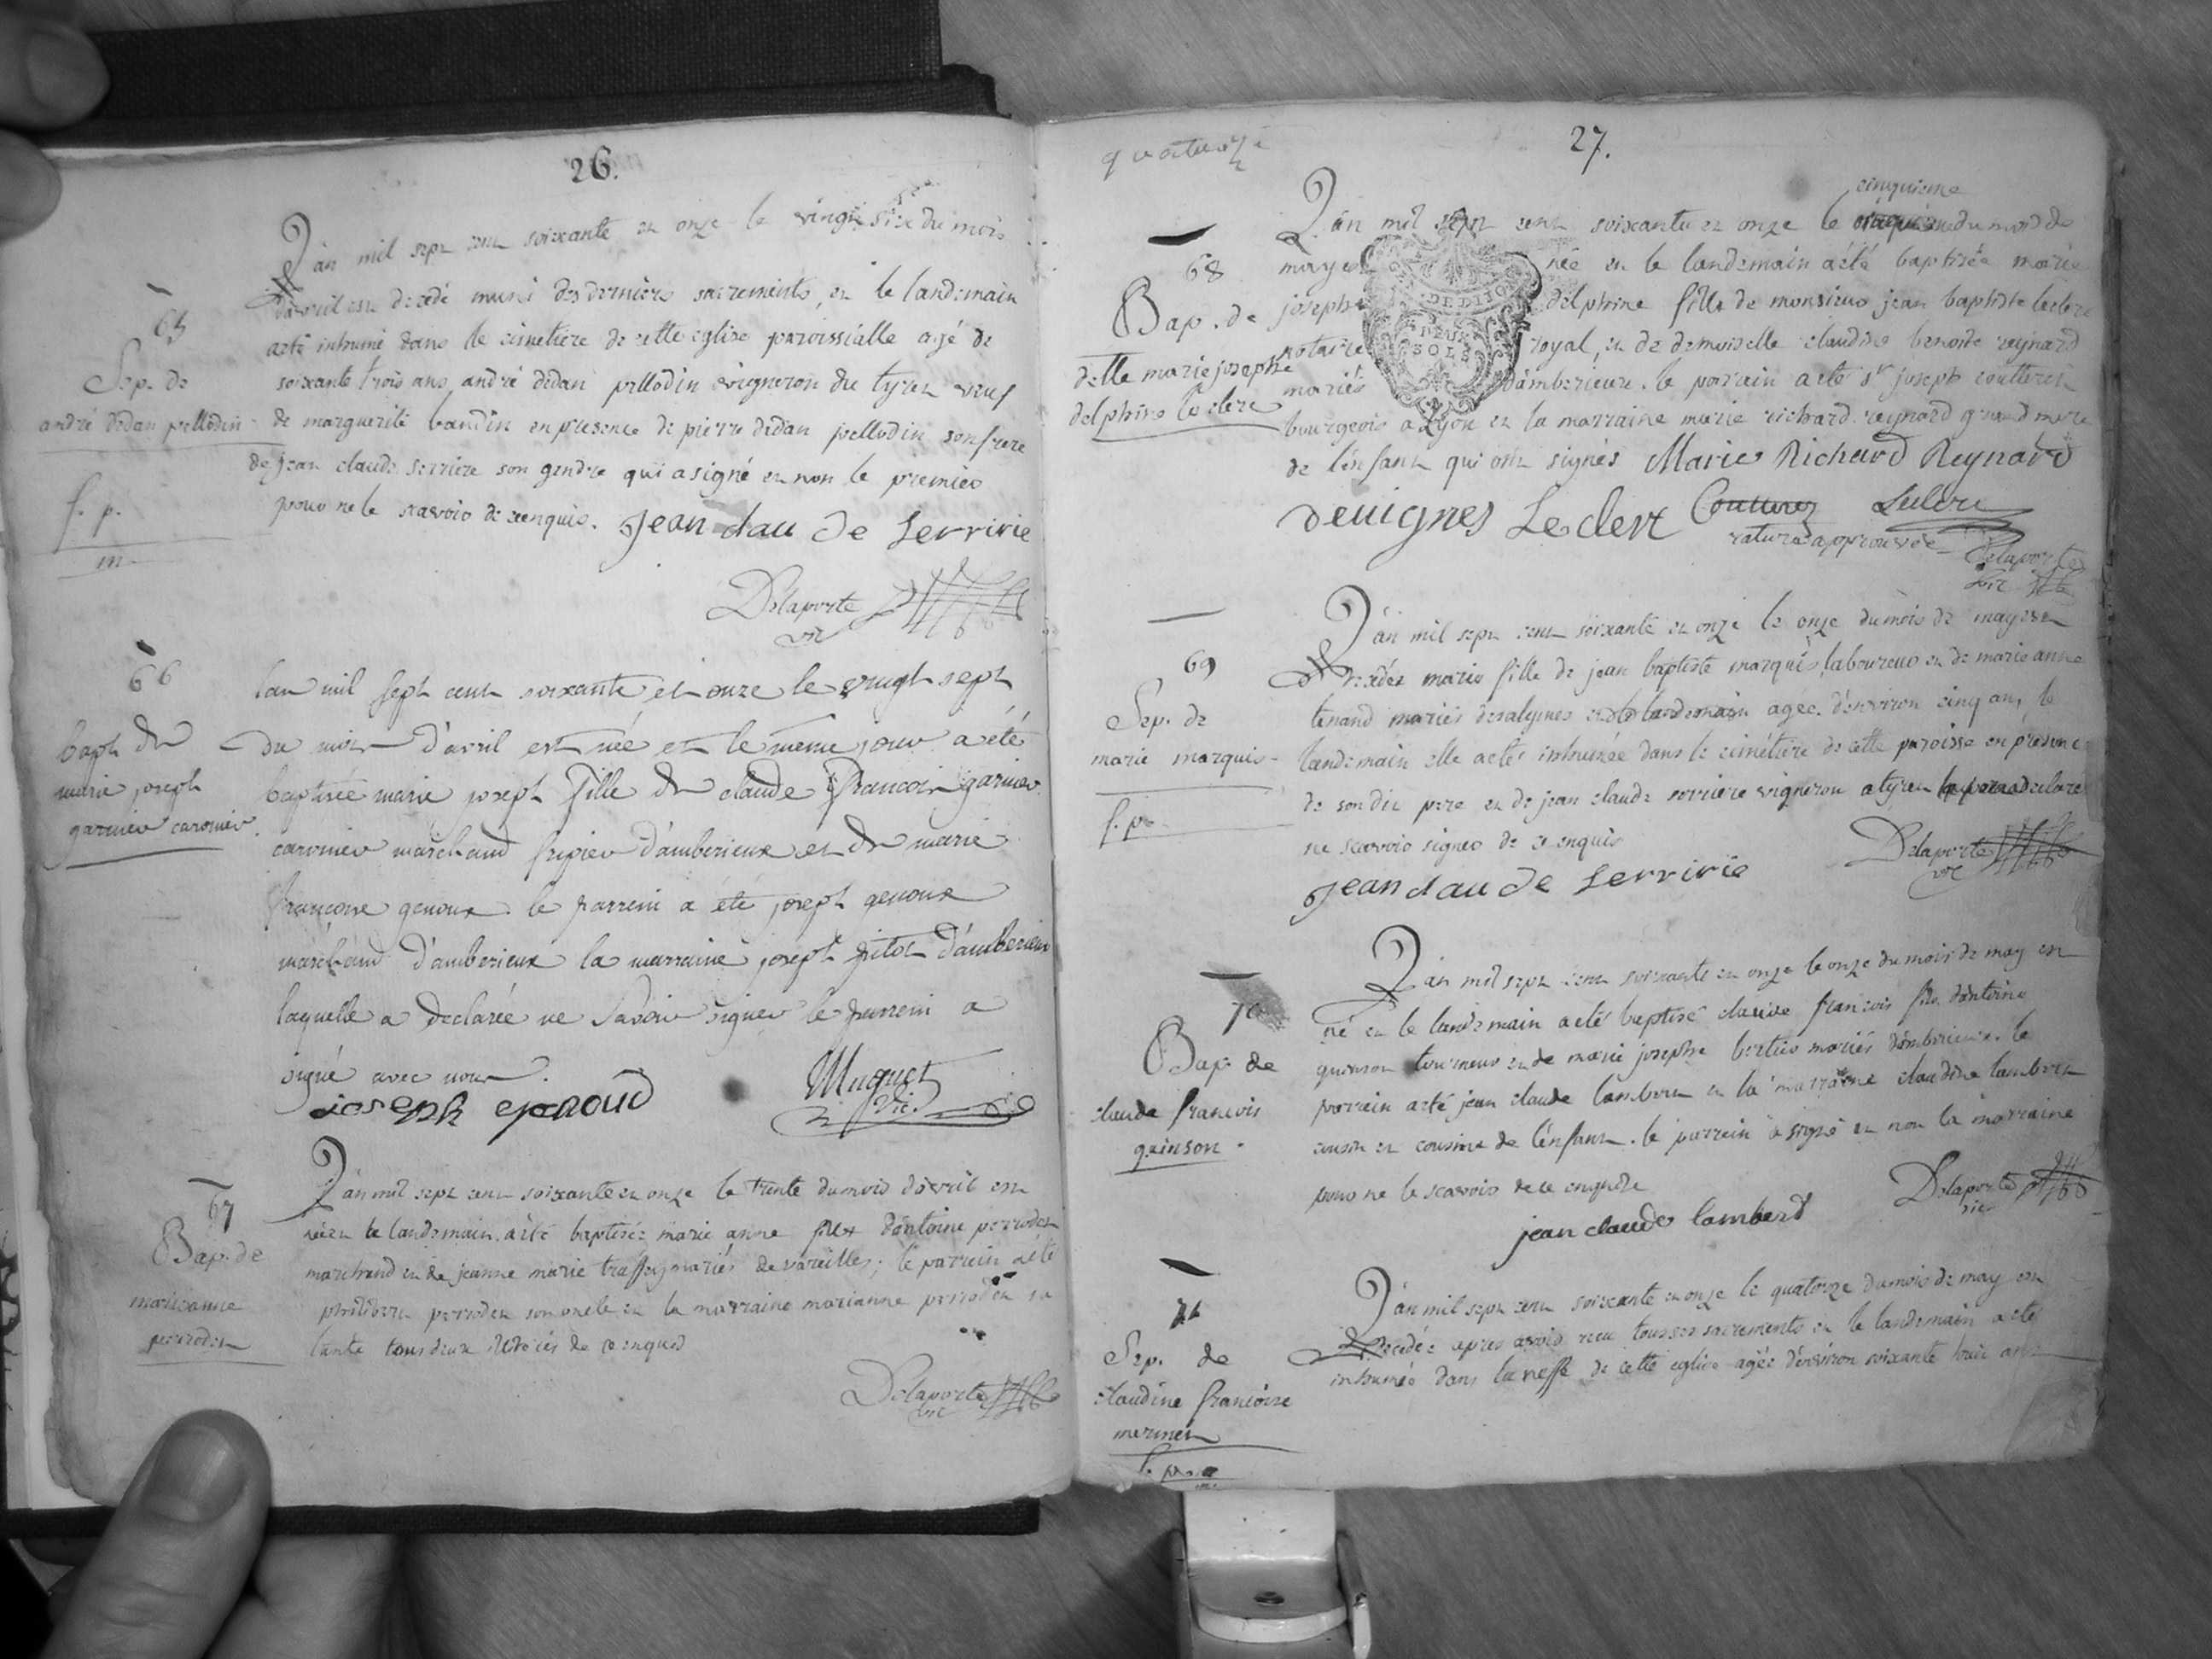 26.
L'an mil sept cent soixante et onze le vingt six du mois
d'avril est decedé muni des derniers sacrements, et le landemain
a eté inhumé dans le cimetiere de cette eglise paroissialle agé de
soixante trois ans, andré dedan pellodin vigneron du tyret veuf
de marguerite baudin en presence de pierre dedan pellodin son frere
de jean claude serriere son gendre qui a signé et non le premier
pour ne le scavoir de ce enquis. Jean clau de Serririe
Delaporte
vic
65
Sep. de
andré dedan pellodin
f. p.
m
66
bapt de
marie joseph
garnier caronier
lan mil sept cent soixante et onze le vingt sept
du mois d'avril est née et le meme jour a été
baptisée marie joseph fille de claude francois garnier
caronier marchand fripier d'amberieux et de marie
francoise genoux. le parrein a été joseph genoux
marchand d'amberieux la marraine joseph pitot d'amberieux
laquelle a declarée ne savoir signer le parrein a
signé avec nous.
joseph genoud
Muguet
vic.
67
Bap. de
marieanne
perrodet
L'an mil sept cent soixante et onze le trente du mois d'avril est
née et le landemain a été baptisée marie anne fille d'antoine perrodet
marchand et de jeanne marie mariés de vareilles; le parrein a été
philibert perrodet son oncle et la marraine marianne perrodet sa
tante tous deux de ce enquis
Delaporte
vic
quatorze
27.
68
Bap. de
delle marie josephe
delphine leclerc
cinquieme
L'an mil sept cent soixante et onze le du mois de
may est née et le landemain a été baptisée marie
josephe delphine fille de monsieur jean baptiste leclerc
notaire royal, et de demoiselle claudine benoite reynard
mariés d'amberieux. le parrain a eté Sr joseph coutteret
bourgeois a Lyon et la marraine marie richard reynard grand mere
de l'enfant qui ont signés Marie Richard Reynard
devignes Leclerc Coutturez Leclerc
rature approuvée
Delaporte
vic
DE DIJON
DEUX
SOLS
69
Sep. de
marie marquis
f. p.
L'an mil sept cent soixante et onze le onze du mois de may est
decedée marie fille de jean baptiste marquis, laboureur et de marie anne
tenand mariés desalymes et le landemain agée d'environ cinq ans, le
landemain elle a eté inhumée dans le cimetiere de cette paroisse en presence
de son dit pere et de jean claude serriere vigneron a tyret le pere a declaré
ne scavoir signer de ce enquis
Jean clau de Serririe
Delaporte
vic
70
Bap de
claude francois
quinson.
L'an mil sept cent soixante et onze le onze du mois de may est
né et le landemain a eté baptisé claude francois fils d'antoine
quinson tourneur et de marie josephe bertier mariés d'amberieux. le
parrain a eté jean claude lambert et la marraine claudine lambert
cousin et cousine de l'enfant. le parrein a signé et non la marraine
pour ne le scavoir de ce enquise
jean claude lamberd
Delaporte
vic
71
Sep. de
claudine francoise
mermet
f. p.
m.
L'an mil sept cent soixante et onze le quatorze du mois de may est
decedée apres avoir recu tous ses sacrements et le landemain a eté
inhumée dans la neffe de cette eglise agée d'environ soixante huit ans